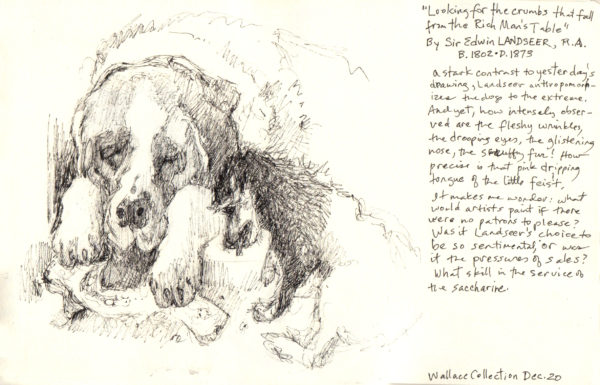 "Looking for the crumbs that fall
from the Rich Man's Table"
By Sir Edwin LANDSEER, R.A.
B. 1802 • D. 1873
a stark contrast to yesterday's
drawing, Landseer anthropomorph-
izes the dogs to the extreme.
And yet, how intensely obser-
ved are the fleshy wrinkles,
the drooping eyes, the glistening
nose, the scruffy fur! How
precise is that pink dripping
tongue of the little feist.
It makes me wonder: what
would artists paint if there
were no patrons to please?
Was it Landseer's choice to
be so sentimental, or was
it the pressures of sales?
What skill in the service of
the saccharine.
Wallace Collection Dec. 20